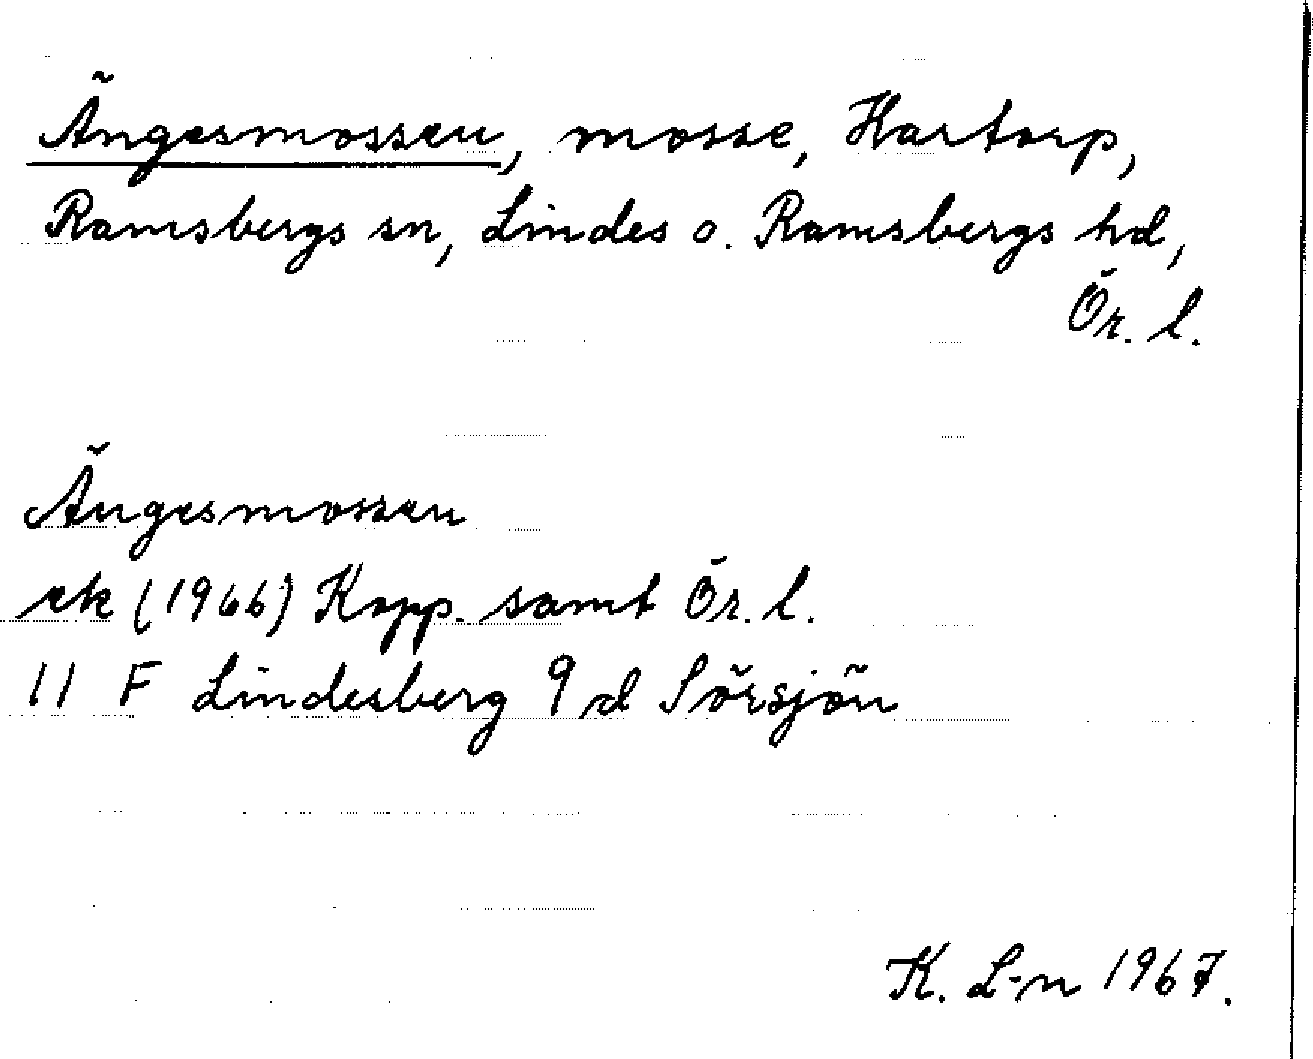 Ängesmossen, mosse, Hartorp,
Ramsbergs sn, Lindes o. Ramsbergs hd,
Ör. l.
Ängesmossen
ek (1966) Kopp. samt Ör. l.
11 F Lindesberg 9 d Sörsjön
K. L-n 1967.